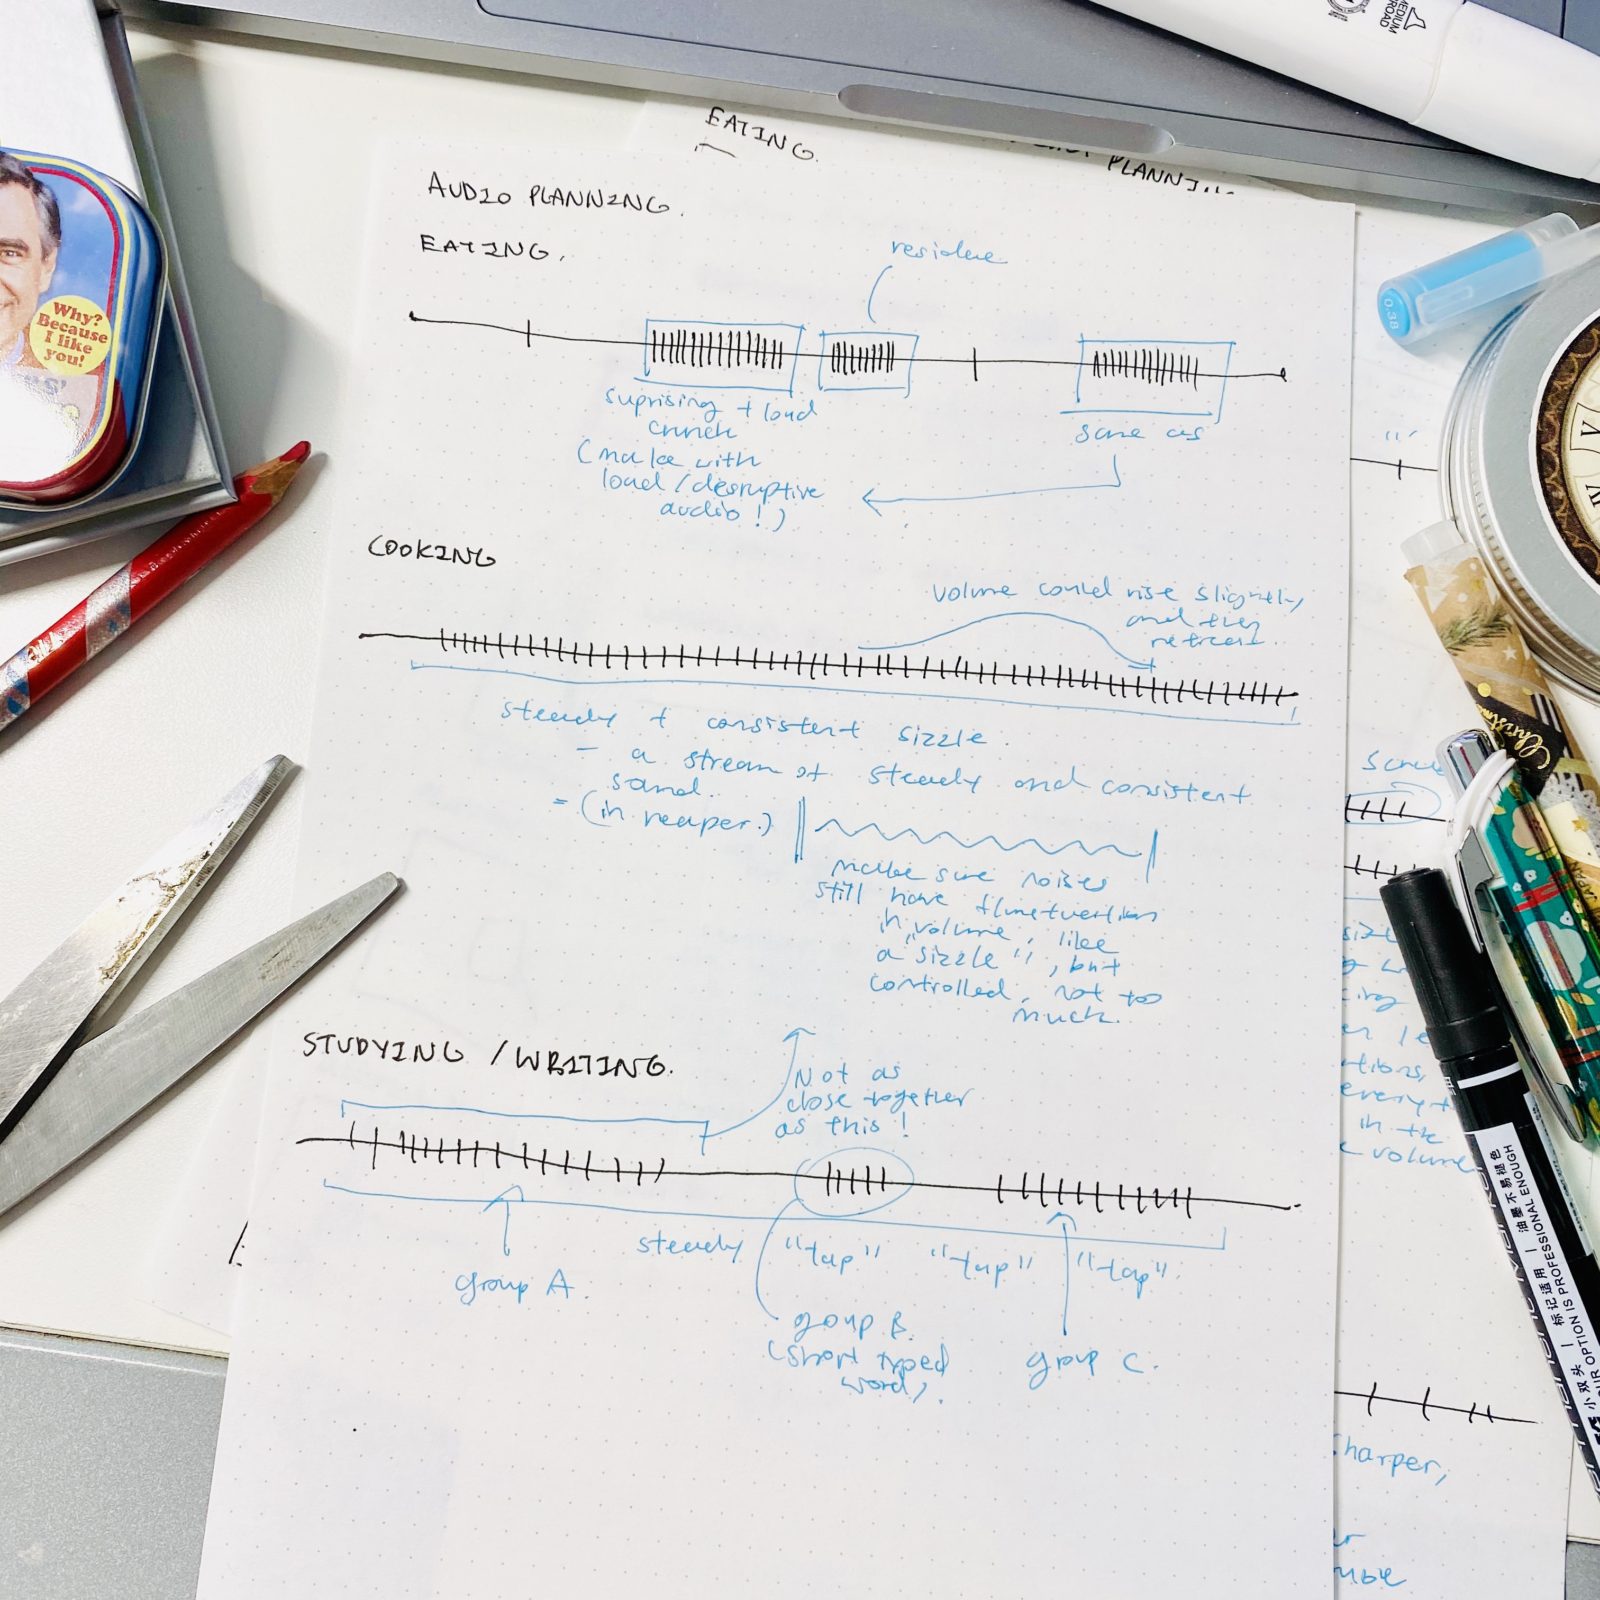 MEDIUM
BROAD
EATING.
PLANNI...
AUDIO PLANNING.
EATING.
residue
suprising + loud
crunch
(make with
loud/desruptive
audio!)
same as
COOKING
volume could rise slightly
and then
retreat.
steady + consistent sizzle.
- a stream of steady and consistent
sand.
= (in reaper.)
make sure noises
still have flunctuertion
in volume, like
"a sizzle", but
controlled, not too
much.
STUDYING / WRITING.
Not as
close together
as this!
steady "tap" "tap" "tap".
group A.
group B.
(short typed
word).
group C.
Why?
Because
I like
you!
0.38
Christmas
in the
volume
harper,
小双头 | 标记适用 | 油墨不易褪色
OUR OPTION IS PROFESSIONAL ENOUGH